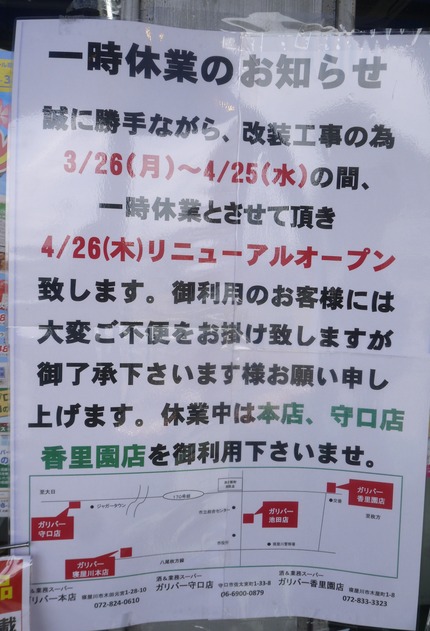 一時休業のお知らせ
誠に勝手ながら、改装工事の為
3/26(月)～4/25(水)の間、
一時休業とさせて頂き
4/26(木)リニューアルオープン
致します。御利用のお客様には
大変ご不便をお掛け致しますが
御了承下さいます様お願い申し
上げます。休業中は本店、守口店
香里園店を御利用下さいませ。
至大日
ジャガータウン
170号線
ガリバー
守口店
ガリバー
池田店
ガリバー
香里園店
至枚方
ガリバー
寝屋川本店
八尾枚方線
酒&業務スーパー
ガリバー本店
072-824-0610
酒&業務スーパー
ガリバー守口店
06-6900-0879
酒&業務スーパー
ガリバー香里園店
072-833-3323